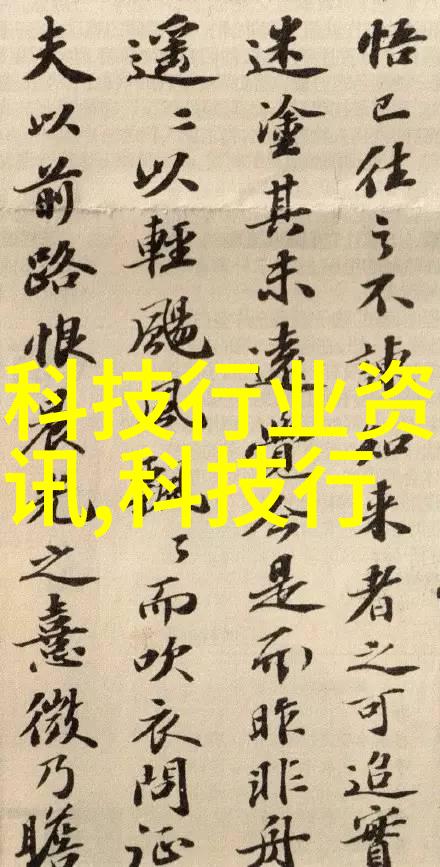 悟已往之不諫知来者之可追實
迷塗其未遠覺今是而昨非舟
遥〻以輕颺風飄〻而吹衣問征
夫以前路恨晨光之熹微乃瞻
科技行业资
讯,科技行